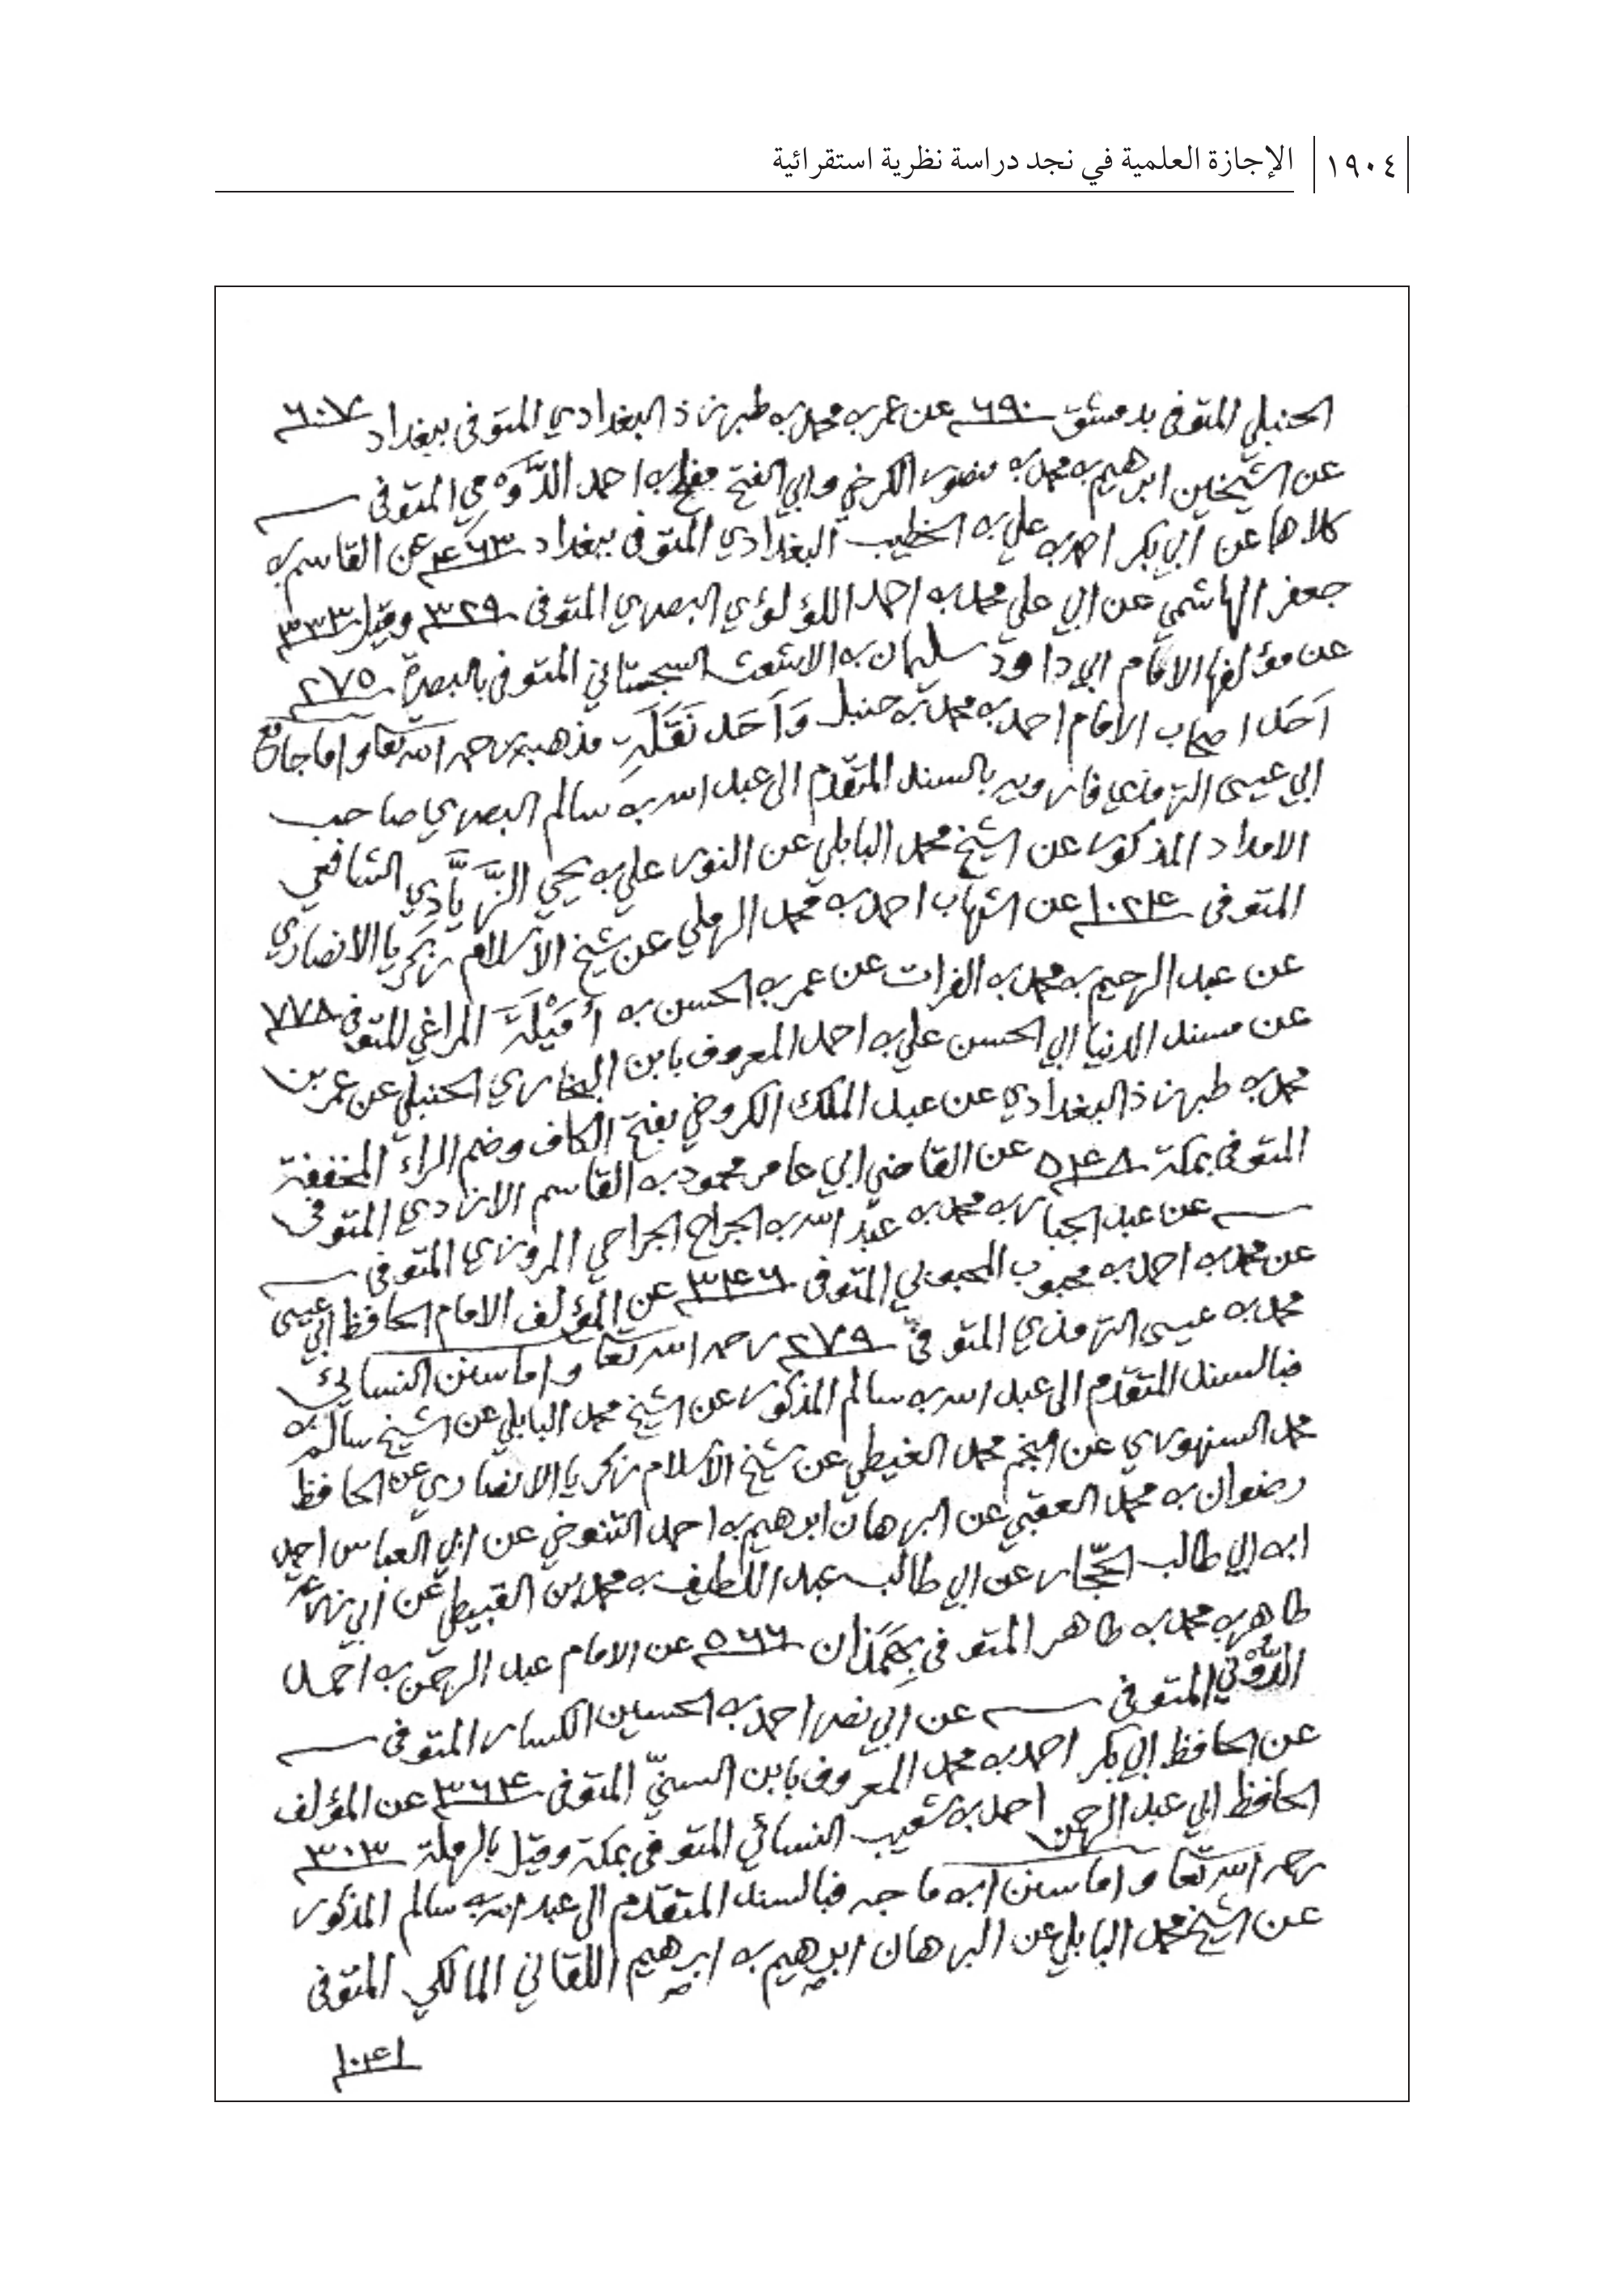 ١٩٠٤ الإجازة العلمية في نجد دراسة نظرية استقرائية
الحنبلي المتوفى بدمشق ٦٩٠ عن عمر به محمد به طبرزذ البغدادي المتوفى ببغداد ٦٠٧
عن الشيخين ابرهيم به محمد به منصور الكرخي وابي الفتح مفلح به احمد الدَّوْمِي المتوفى
كلاهما عن ابي بكر احمد به علي به الخطيب البغدادي المتوفى ببغداد ٤٦٣ عن القاسم به
جعفر الهاشمي عن ابي علي محمد به احمد اللؤلؤي البصري المتوفى ٣٢٩ وقيل ٣٣٣
عن مؤلفها الامام ابي داود سليمان به الاشعث السجستاني المتوفى بالبصرة ٢٧٥
اَحَد اصحاب الامام احمد به محمد به حنبل وَاَحَد نَقَلَةِ مذهبه رحمه الله تعا واما جامع
ابي عيسى الترمذي فارويه بالسند المتقدم الى عبد الله به سالم البصري صاحب
الامداد المذكور عن الشيخ محمد البابلي عن النور علي به يحيي الزَّيَّادِي الشافعي
المتوفى ١٠٢٤ عن الشهاب احمد به محمد الرملي عن شيخ الاسلام زكريا الانصاري
عن عبد الرحيم به محمد به الفرات عن عمر به الحسن به اُمَيْلَةَ المراغي المتوفى ٧٧٨
عن مسند الدنيا ابي الحسن علي به احمد المعروف بابن البخاري الحنبلي عن عمر بن
محمد به طبرزذ البغدادي عن عبد الملك الكروخي بفتح الكاف وضم الراء المخففة
المتوفى بمكة ٥٤٨ عن القاضي ابي عامر محمود به القاسم الازدي المتوفى
عن عبد الجبار به محمد به عبد الله به الجراح الجراحي المروزي المتوفى
عن محمد به احمد به محبوب المحبوبي المتوفى ٣٤٦ عن المؤلف الامام الحافظ ابي عيسى
محمد به عيسى الترمذي المتوفى ٢٧٩ رحمه الله تعا واما سنن النسائي
فبالسند المتقدم الى عبد الله به سالم المذكور عن الشيخ محمد البابلي عن الشيخ سالم به
محمد السنهوري عن النجم محمد الغيطي عن شيخ الاسلام زكريا الانصاري عن الحافظ
رضوان به محمد العقبي عن البرهان ابرهيم به احمد التنوخي عن ابي العباس احمد
ابه ابي طالب الحجّار عن ابي طالب عبد اللطيف به محمد بن القبيطي عن ابي زرعة
طاهر به محمد به طاهر المتوفى بِهَمَذَان ٥٦٦ عن الامام عبد الرحمن به احمد
الدُّوْني المتوفى عن ابي نصر احمد به الحسين الكسار المتوفى
عن الحافظ ابي بكر احمد به محمد المعروف بابن السنيّ المتوفى ٣٦٤ عن المؤلف
الحافظ ابي عبد الرحمن احمد به شعيب النسائي المتوفى بمكة وقيل بالرملة ٣٠٣
رحمه الله تعا واما سنن ابه ماجه فبالسند المتقدم الى عبد الله به سالم المذكور
عن الشيخ محمد البابلي عن البرهان ابرهيم به ابرهيم اللقاني المالكي المتوفى
١٠٤١